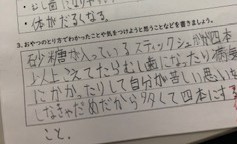 むし歯になりやす
・体がだるくなる。
3. おやつのとり方でわかったことや気をつけようと思うことなどを書きましょう。
砂糖が入っているスティックシュガが四本
以上こえてたらむし歯になったり病気
にかかったりして自分が苦しい思いを
しなきゃだめだから多くて四本にする
こと。